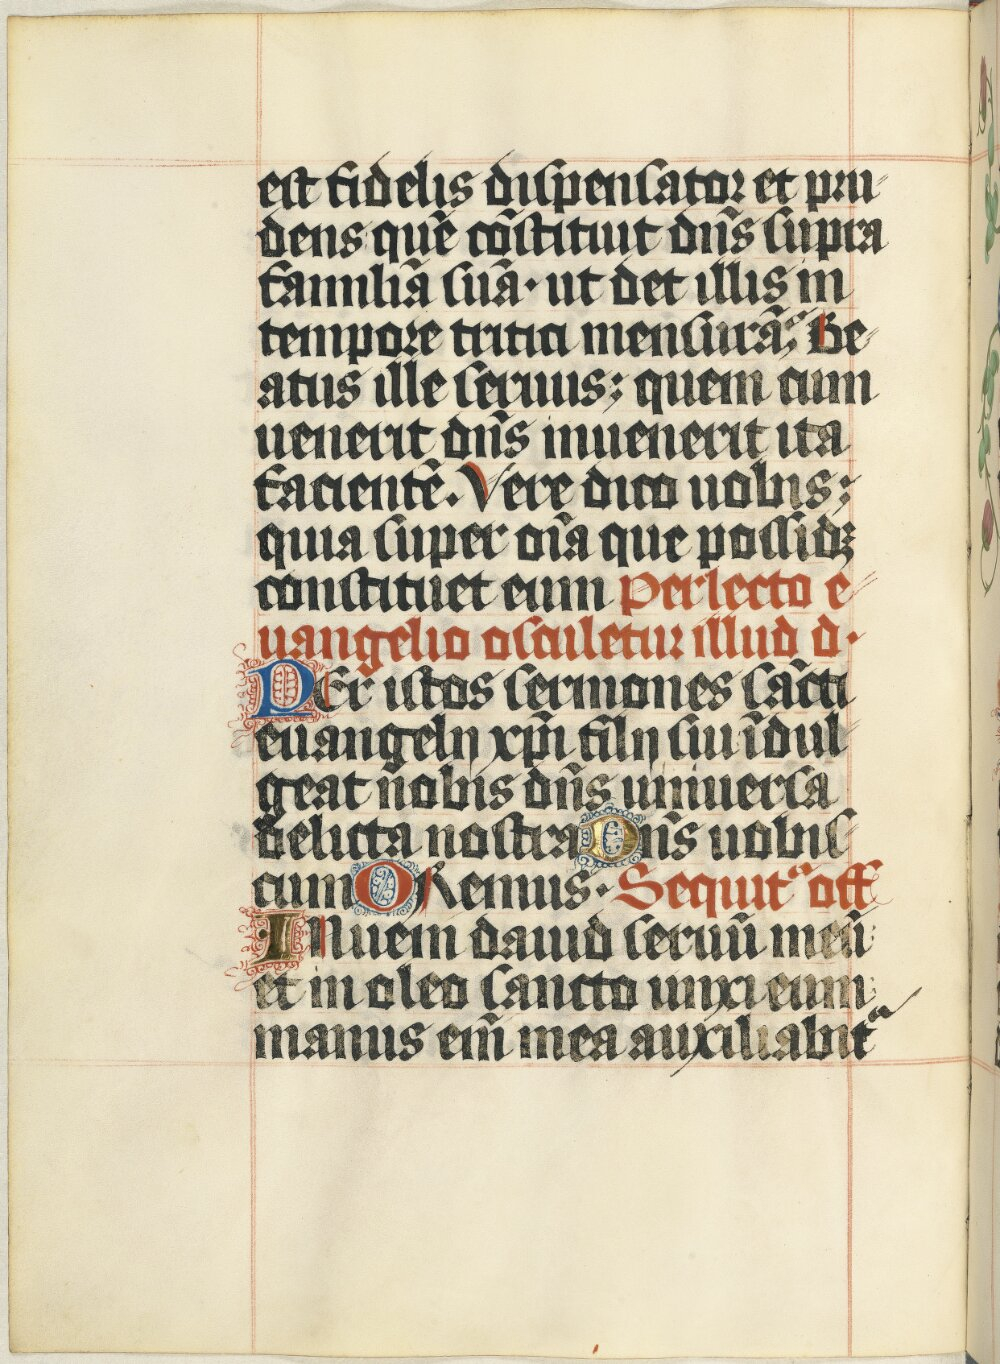 est fidelis dispensator et pru-
dens quē cōstituit dn̄s supra
familiā suā · ut det illis in
tempore tritici mensurā; Be-
atus ille seruus; quem cum
uenerit dn̄s inuenerit ita
facientē. Vere dico uobis;
quia super oīa que possidꝫ
constituet eum Perlecto e-
uangelio osculetur illud d.
PEr istos sermones sācti
euangelij xp̄i filij sui īdul
geat nobis dn̄s uniuersa
delicta nostra Dn̄s uobis
cum ORemus · Sequitᵃ off
INuem dauid seruū meū:
et in oleo sancto unxi eum
manus em̄ mea auxiliabitᵃ